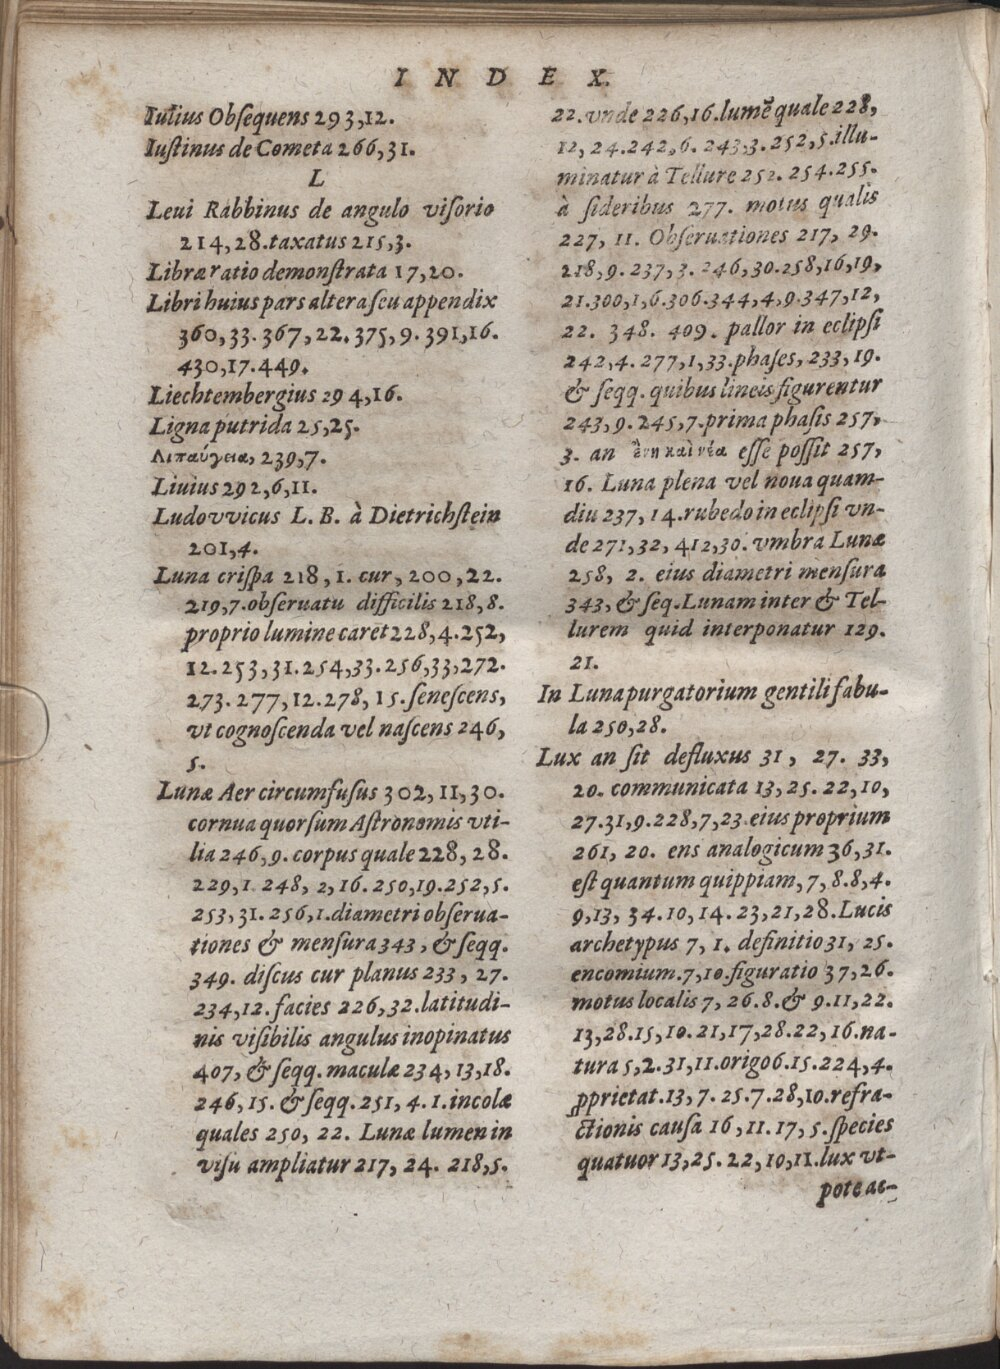 INDEX.
Iulius Obsequens 293,12.
Iustinus de Cometa 266,31.
L
Leui Rabbinus de angulo visorio
214,28.taxatus 215,3.
Libræ ratio demonstrata 17,20.
Libri huius pars altera seu appendix
360,33.367,22.375,9.391,16.
430,17.449.
Liechtembergius 294,16.
Ligna putrida 25,25.
Λιπαύγεια, 239,7.
Liuius 292,6,11.
Ludovvicus L. B. à Dietrichstein
201,4.
Luna crispa 218, 1. cur, 200,22.
219,7.obseruatu difficilis 218,8.
proprio lumine caret 228,4.252,
12.253,31.254,33.256,33,272.
273.277,12.278,15.senescens,
vt cognoscenda vel nascens 246,
5.
Lunæ Aer circumfusus 302,11,30.
cornua quorsum Astronomis vti-
lia 246,9.corpus quale 228,28.
229,1.248,2,16.250,19.252,5.
253,31.256,1.diametri obserua-
tiones & mensura 343, & seqq.
349. discus cur planus 233, 27.
234,12.facies 226,32.latitudi-
nis visibilis angulus inopinatus
407, & seqq. maculæ 234,13,18.
246,15. & seqq. 251, 4. 1.incolæ
quales 250, 22. Lunæ lumen in
visu ampliatur 217, 24. 218,5.
22.vnde 226,16.lumē quale 228,
12, 24.242,6. 243,3.252,5.illu-
minatur à Tellure 252. 254.255.
à sideribus 277. motus qualis
227, 11. Obseruationes 217, 29.
218,9.237,3.246,30.258,16,19,
21.300,1,6.306.344,4,9.347,12,
22. 348. 409. pallor in eclipsi
242,4.277,1,33.phases, 233,19.
& seqq. quibus lineis figurentur
243,9.245,7.prima phasis 257,
3. an ἔνη καὶ νέα esse possit 257,
16. Luna plena vel noua quam-
diu 237,14.rubedo in eclipsi vn-
de 271,32, 412,30. vmbra Lunæ
258, 2. eius diametri mensura
343, & seq. Lunam inter & Tel-
lurem quid interponatur 129.
21.
In Luna purgatorium gentili fabu-
la 250,28.
Lux an sit defluxus 31, 27. 33,
20. communicata 13,25.22,10,
27.31,9.228,7,23.eius proprium
261, 20. ens analogicum 36,31.
est quantum quippiam, 7, 8.8,4.
9,13, 34.10,14.23,21,28.Lucis
archetypus 7, 1. definitio 31, 25.
encomium.7,10.figuratio 37,26.
motus localis 7, 26.8.& 9.11,22.
13,28.15,10.21,17,28.22,16.na-
tura 5,2.31,11.origo 6.15.224,4.
ꝓprietat.13,7.25.7.28,10.refra-
ctionis causa 16,11.17,5.species
quatuor 13,25.22,10,11.lux vt-
pote ac-